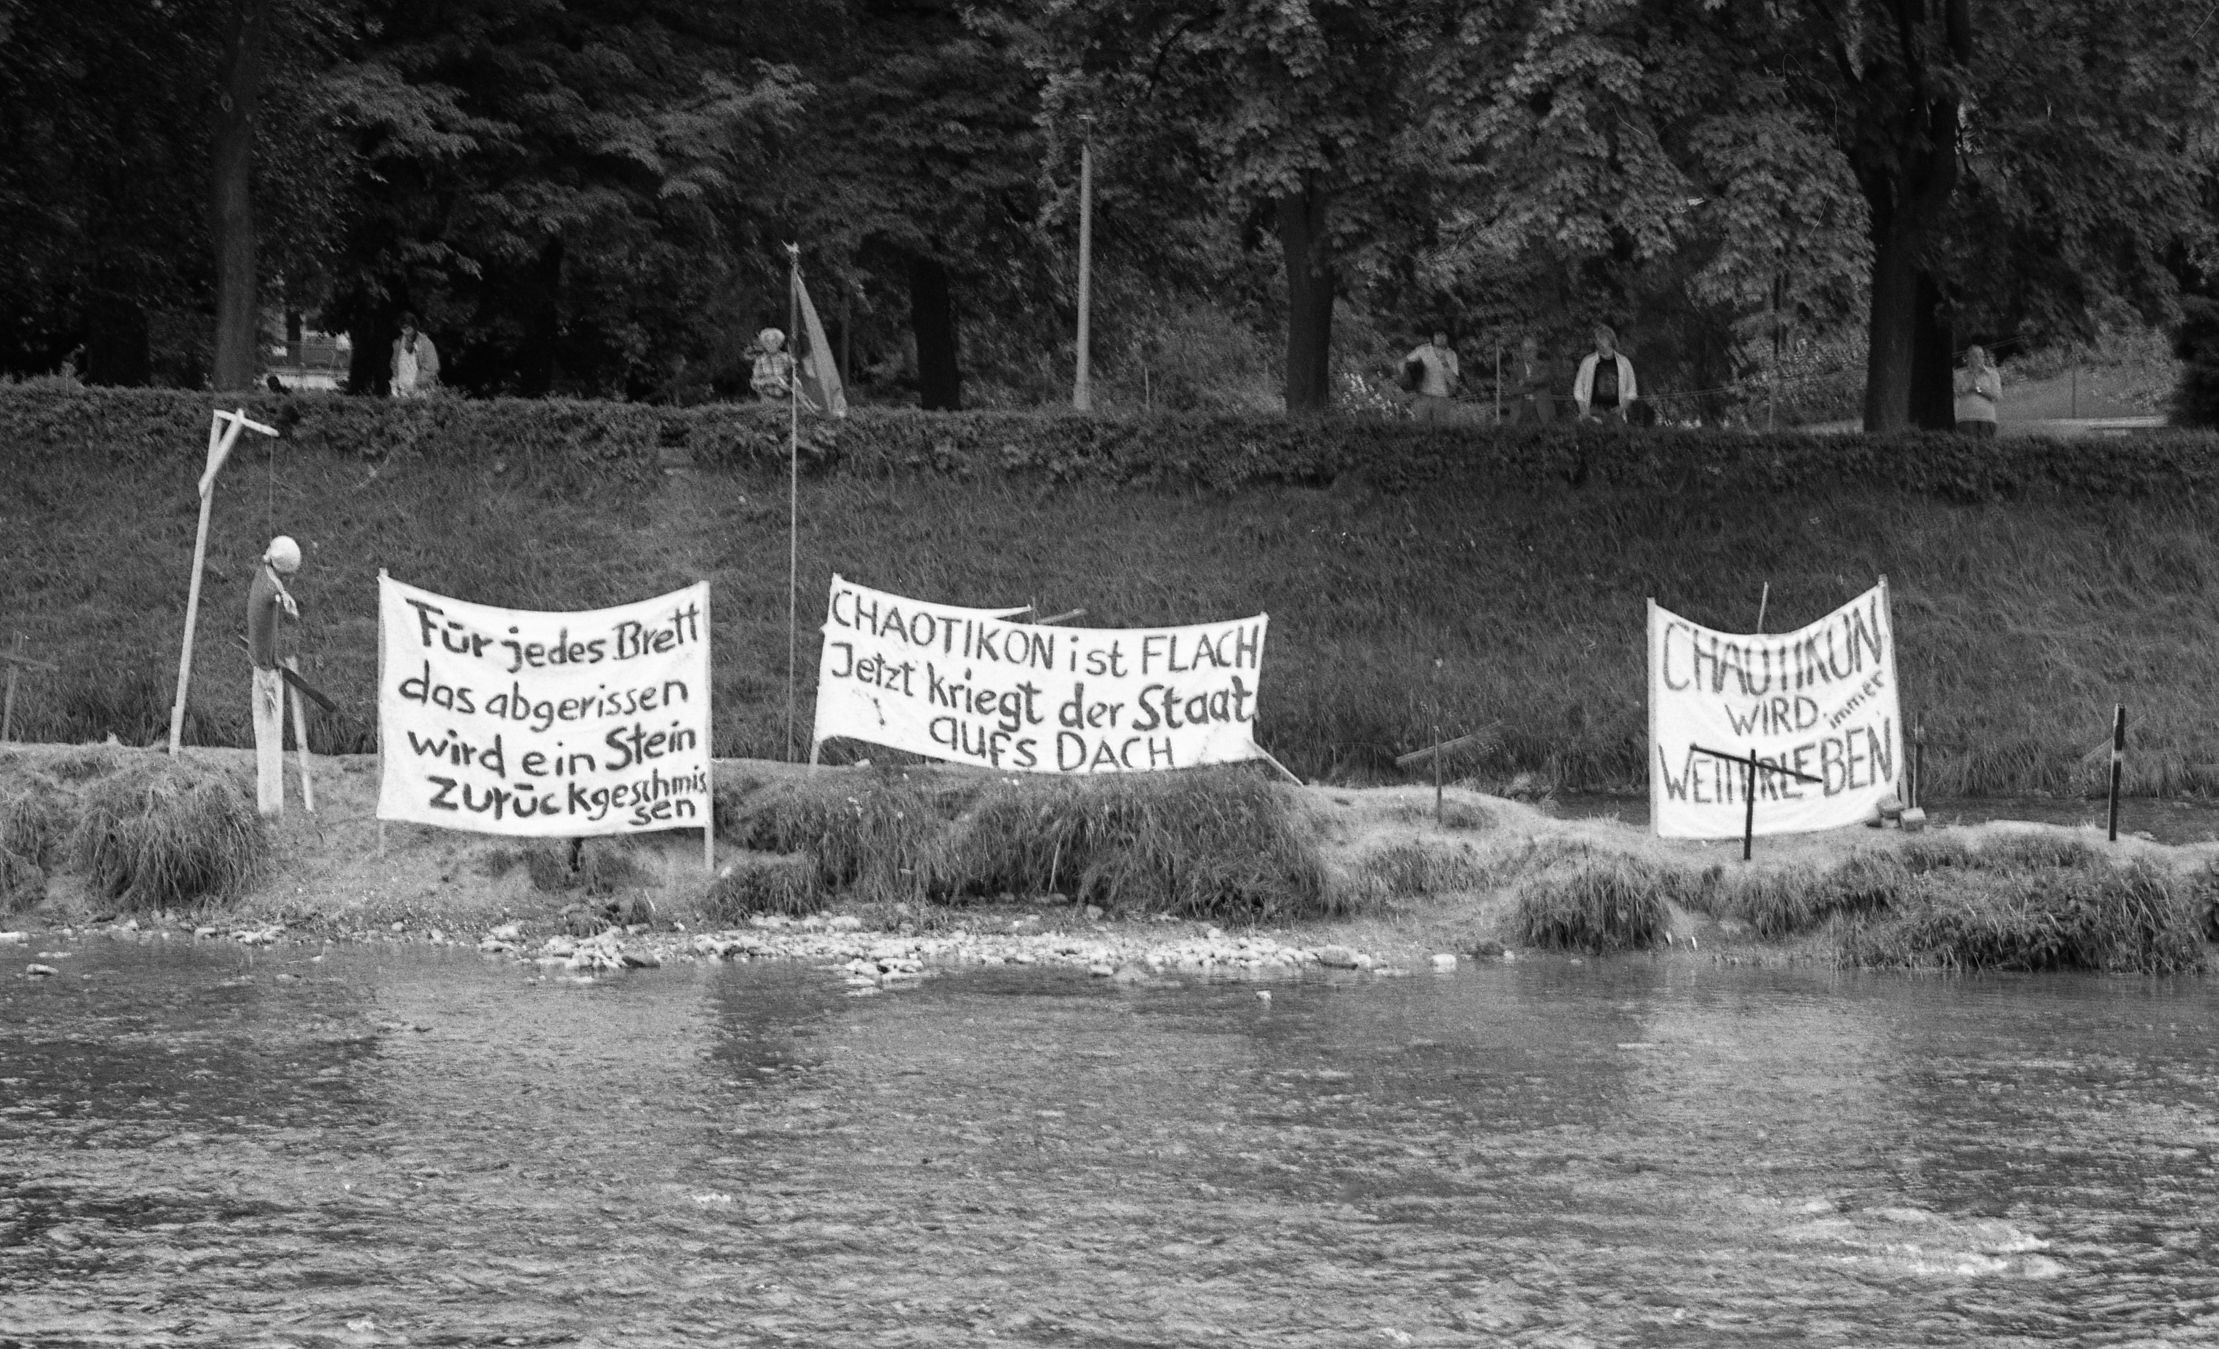 Für jedes Brett
das abgerissen
wird ein Stein
zurückgeschmis
sen
CHAOTIKON ist FLACH
Jetzt kriegt der Staat
aufs DACH
CHAOTIKON
WIRD immer
WEITERLEBEN